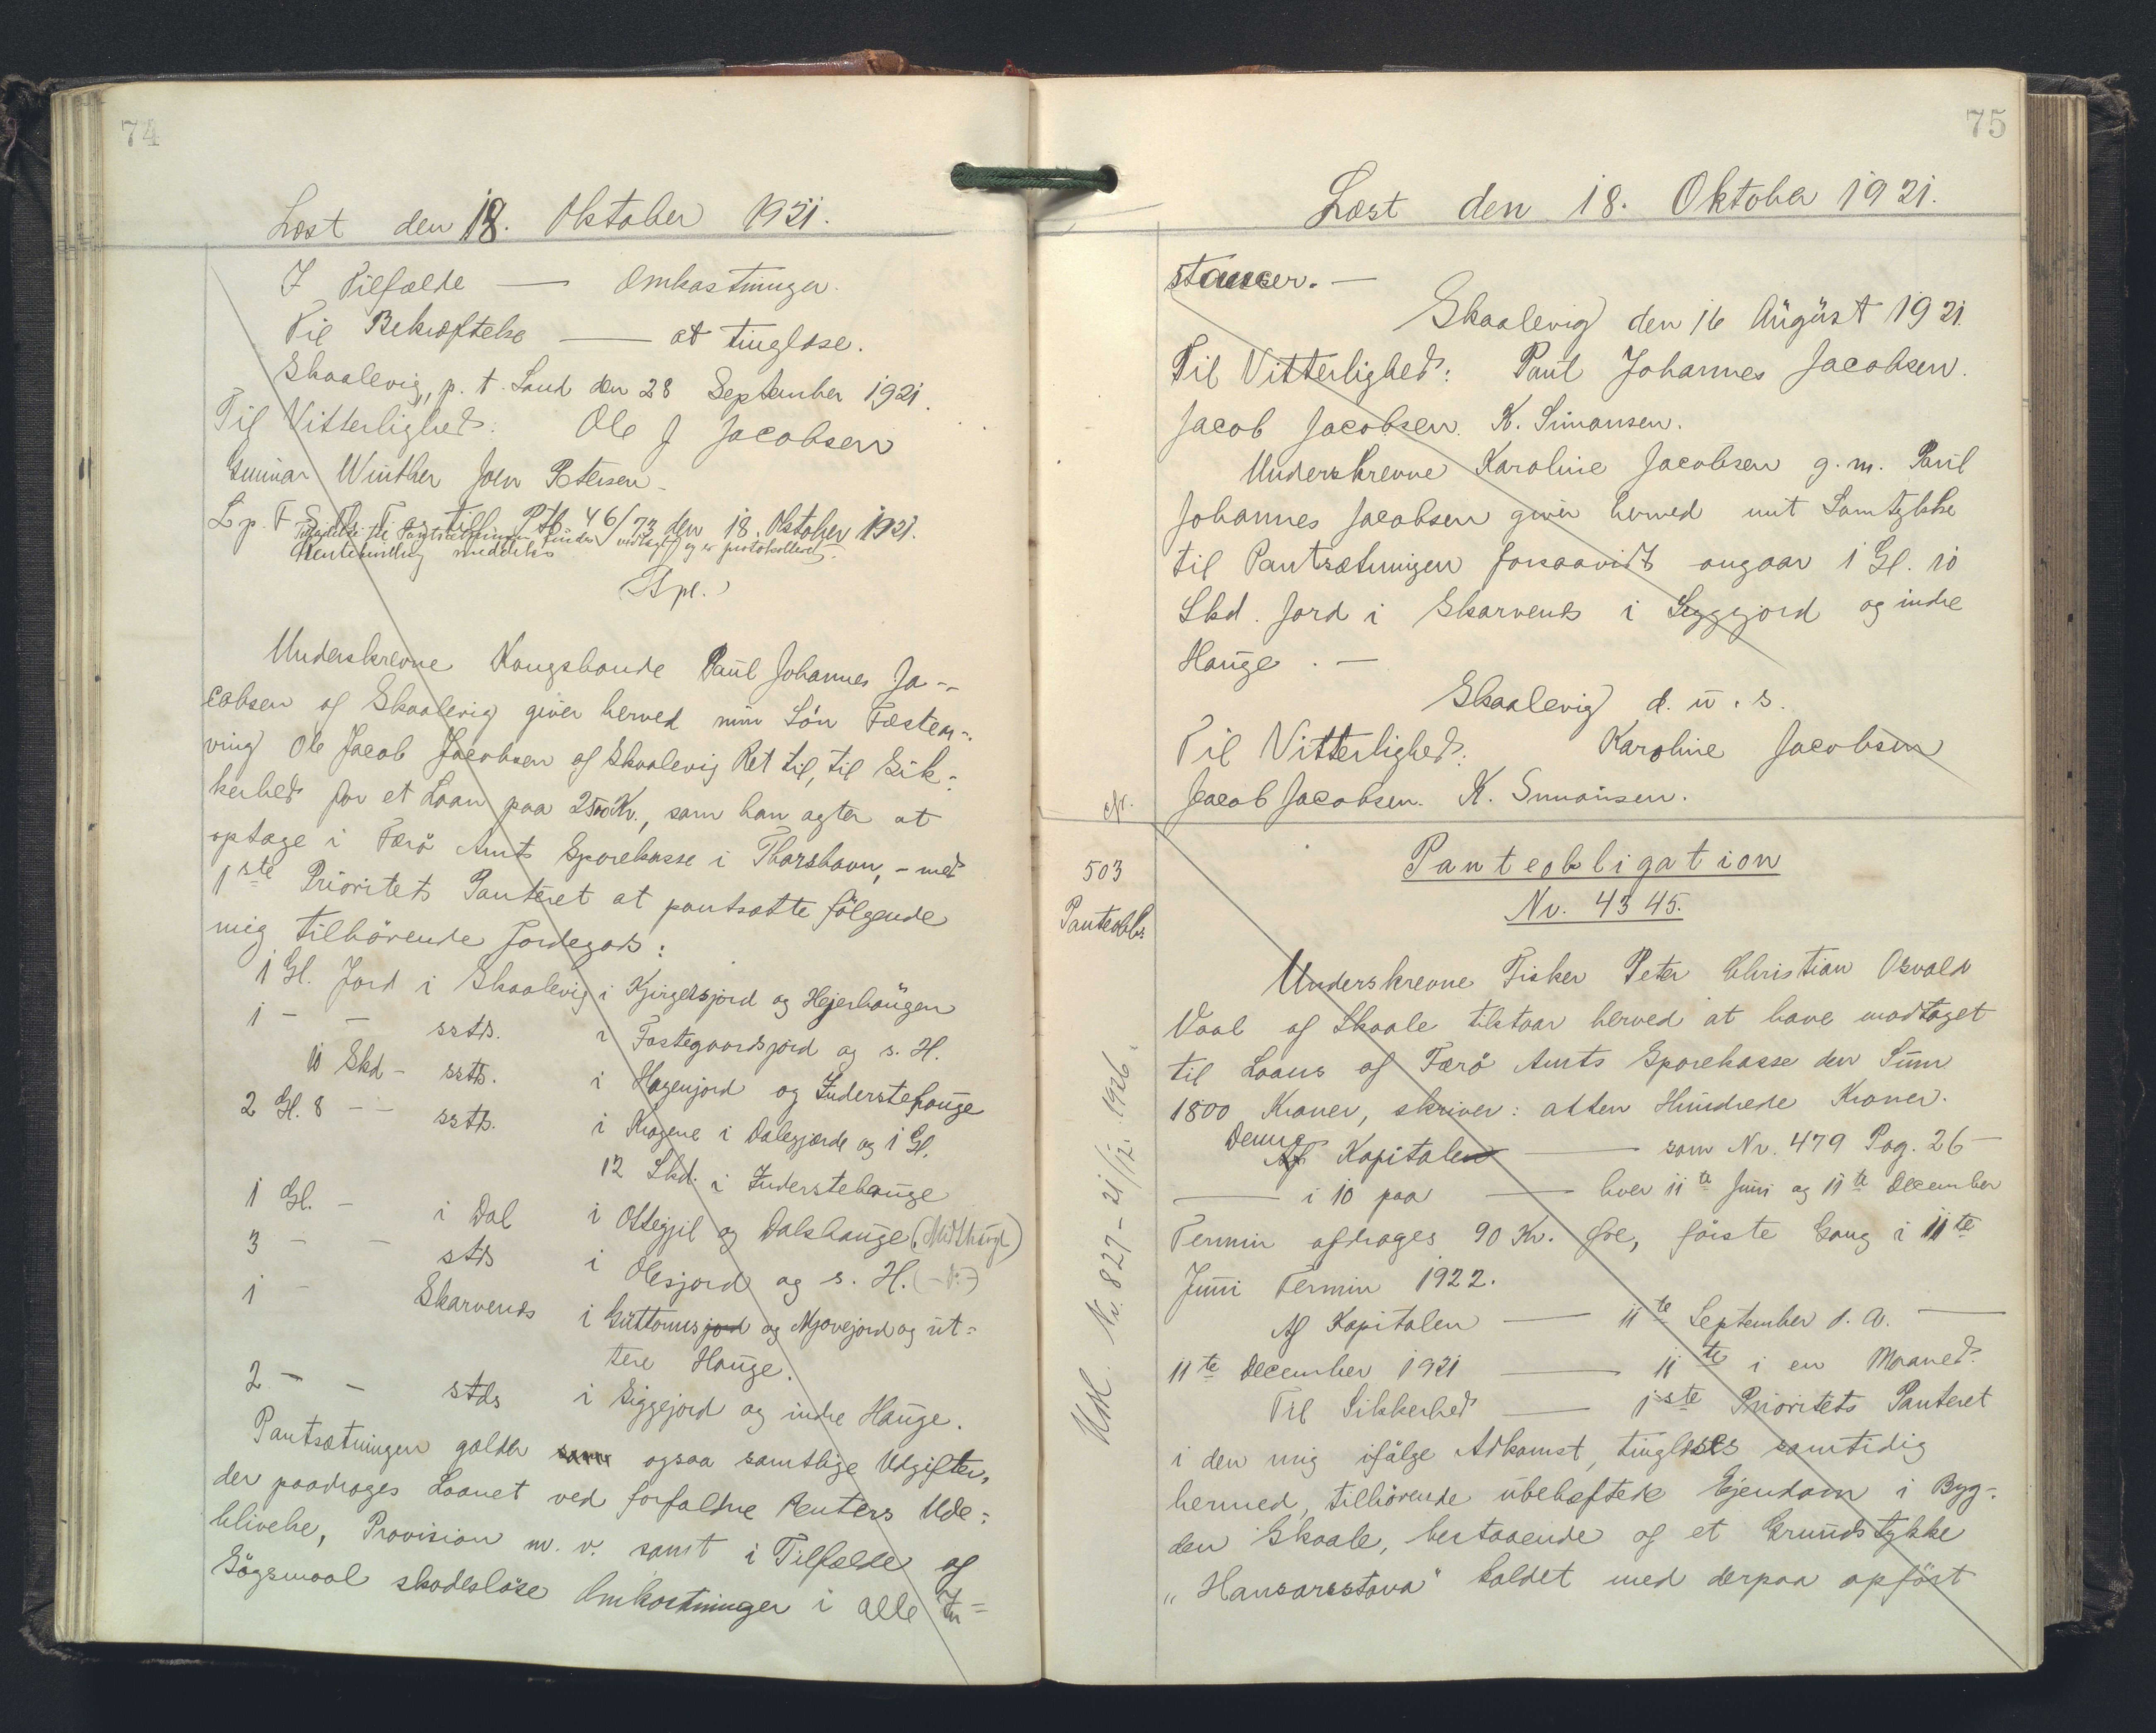 74
Læst den 18. Oktober 1921.
I Tilfælde — Omkostninger.
Til Bekræftelse — at tinglæse.
Skaalevig, p. t. Sand den 28 September 1921.
Til Vitterlighed: Ole J Jacobsen
Gunnar Winther Joen Petersen
L p. F S Th. Ptb. 46/73 den 18. Oktober 1921.
til Pantsætningen findes vedlagt og er protokolleret.
meddeles
Underskrevne Kongsbonde Paul Johannes Ja-
cobsen af Skaalevig giver herved min Sön Fæstem-
ring Ole Jacob Jacobsen af Skaalevig Ret til, til Sik-
kerhed for et Laan paa 2500 Kr., som han agter at
optage i Færö Amts Sparekasse i Thorshavn, - med
1ste Prioritets Panteret at pantsætte fölgende
mig tilhörende Jordegods:
1 Gl. Jord i Skaalevig i Kjirgetsjord og Hejerhaugen
1 - - ssts. i Fostegaardsjord og s. H.
10 Skd - ssts. i Hagenjord og Inderstehauge
2 Gl. 8 - - ssts. i Krogene i Dalegjærde og 1 Gl.
12 Skd. i Inderstehauge
1 Gl. - i Dal i Ottegjil og Dalshauge (Midthúgv)
3 - - sts i Olesjord og s. H. (-"-)
1 - Skarvenes i Guttormsjord og Mjovejord og üt-
tere Hauge.
2 - - stds i Siggejord og indre Hauge.
Pantsætningen gælder som ogsaa samtlige Udgifter,
der paadrages Laanet ved forfaldne Renters Ude-
blivelse, Provision m. v. samt i Tilfælde af
Sögsmaal skadeslöse Omkostninger i alle In-
75
Læst den 18. Oktober 1921.
stancer. —
Skaalevig den 16 August 1921.
Til Vitterlighed: Paul Johannes Jacobsen.
Jacob Jacobsen. K. Simonsen.
Underskrevne Karoline Jacobsen g. m. Paul
Johannes Jacobsen giver herved mit Samtykke
til Pantsætningen forsaavidt angaar 1 Gl. 10
Skd. Jord i Skarvenes i Siggejord og indre
Hauge. —
Skaalevig d. u. s.
Til Vitterlighed: Karoline Jacobsen
Jacob Jacobsen. K. Simonsen.
cfr.
503
Panteobl.
Udl. Nr. 827 - 21/12 1926.
Panteobligation
Nr. 4345.
Underskrevne Fisker Peter Christian Osvald
Vaal af Skaale tilstaar herved at have modtaget
til Laans af Færö Amts Sparekasse den Sum
1800 Kroner, skriver: atten Hundrede Kroner.
Denne
Af Kapitalen — som Nr. 479 Pag. 26 —
— i 10 paa — hver 11te Juni og 11te December
Termin afdrages 90 Kr. förste Gang i 11te
Juni Termin 1922.
Af Kapitalen — 11te September d. A. —
11te December 1921 — 11te i en Maaned.
Til Sikkerhed — 1ste Prioritets Panteret
i den mig ifölge Adkomst, tinglæses samtidig
hermed, tilhörende ubehæftede Ejendom i Byg-
den Skaale, bestaaende af et Grundstykke
„Hansarsstova" kaldet med derpaa opfört